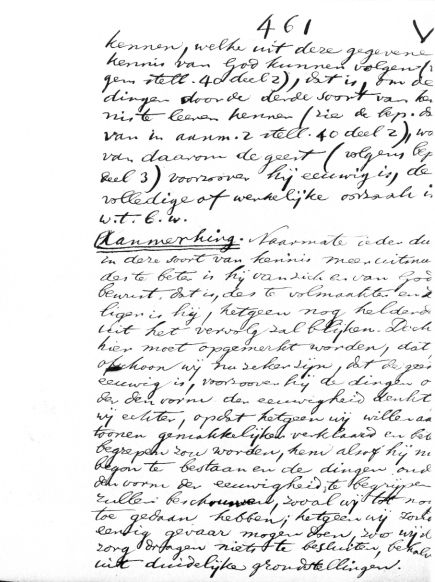 461 V
kennen, welke uit deze gegevene
kennis van God kunnen volgen (v
gens stell. 40 deel 2), dat is, om de
dingen door de derde soort van ken
nis te leeren kennen (zie de bep. d
van in aanm. 2 stell. 40 deel 2), wa
van daarom de geest (volgens bep
deel 3) voorzoover hij eeuwig is, de
volledige of werkelijke oorzaak is
w.t.b.w.
Aanmerking. Naarmate ieder du
in deze soort van kennis meer uitmu
des te beter is hij van zich en van God
bewust. dat is, des te volmaakter en z
liger is hij, hetgeen nog helderde
uit het vervolg zal blijken. Doch
hier moet opgemerkt worden, dat
ofschoon wij nu zeker zijn, dat de gees
eeuwig is, voorzoover hij de dingen o
der den vorm der eeuwigheid denkt
wij echter, opdat hetgeen wij willen aa
toonen gemakkelijker verklaard en bet
begrepen zou worden, hem alsof hij nu
begon te bestaan en de dingen ond
den vorm der eeuwigheid te begrijpen
zullen beschouwen, zooals wij tot no
toe gedaan hebben; hetgeen wij zond
eenig gevaar mogen doen, zoo wij d
zorg dragen niets te besluiten, behal
uit duidelijke grondstellingen.